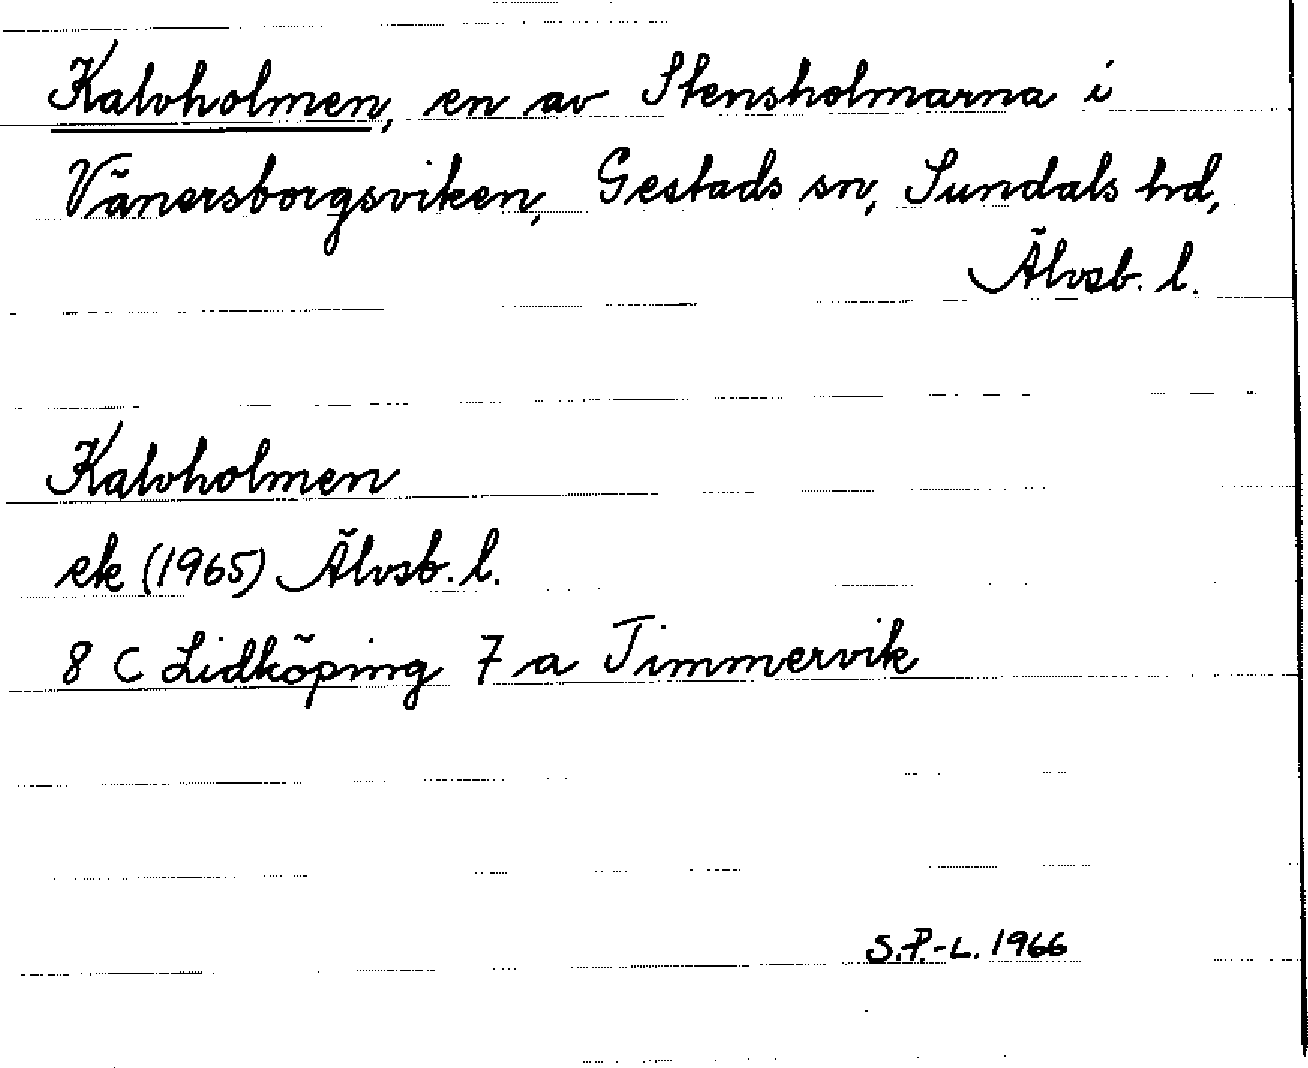 Kalvholmen, en av Stensholmarna i
Vänersborgsviken, Gestads sn, Sundals hd,
Älvsb. l.
Kalvholmen
ek (1965) Älvsb. l.
8 C Lidköping 7 a Timmervik
S.P.-L. 1966